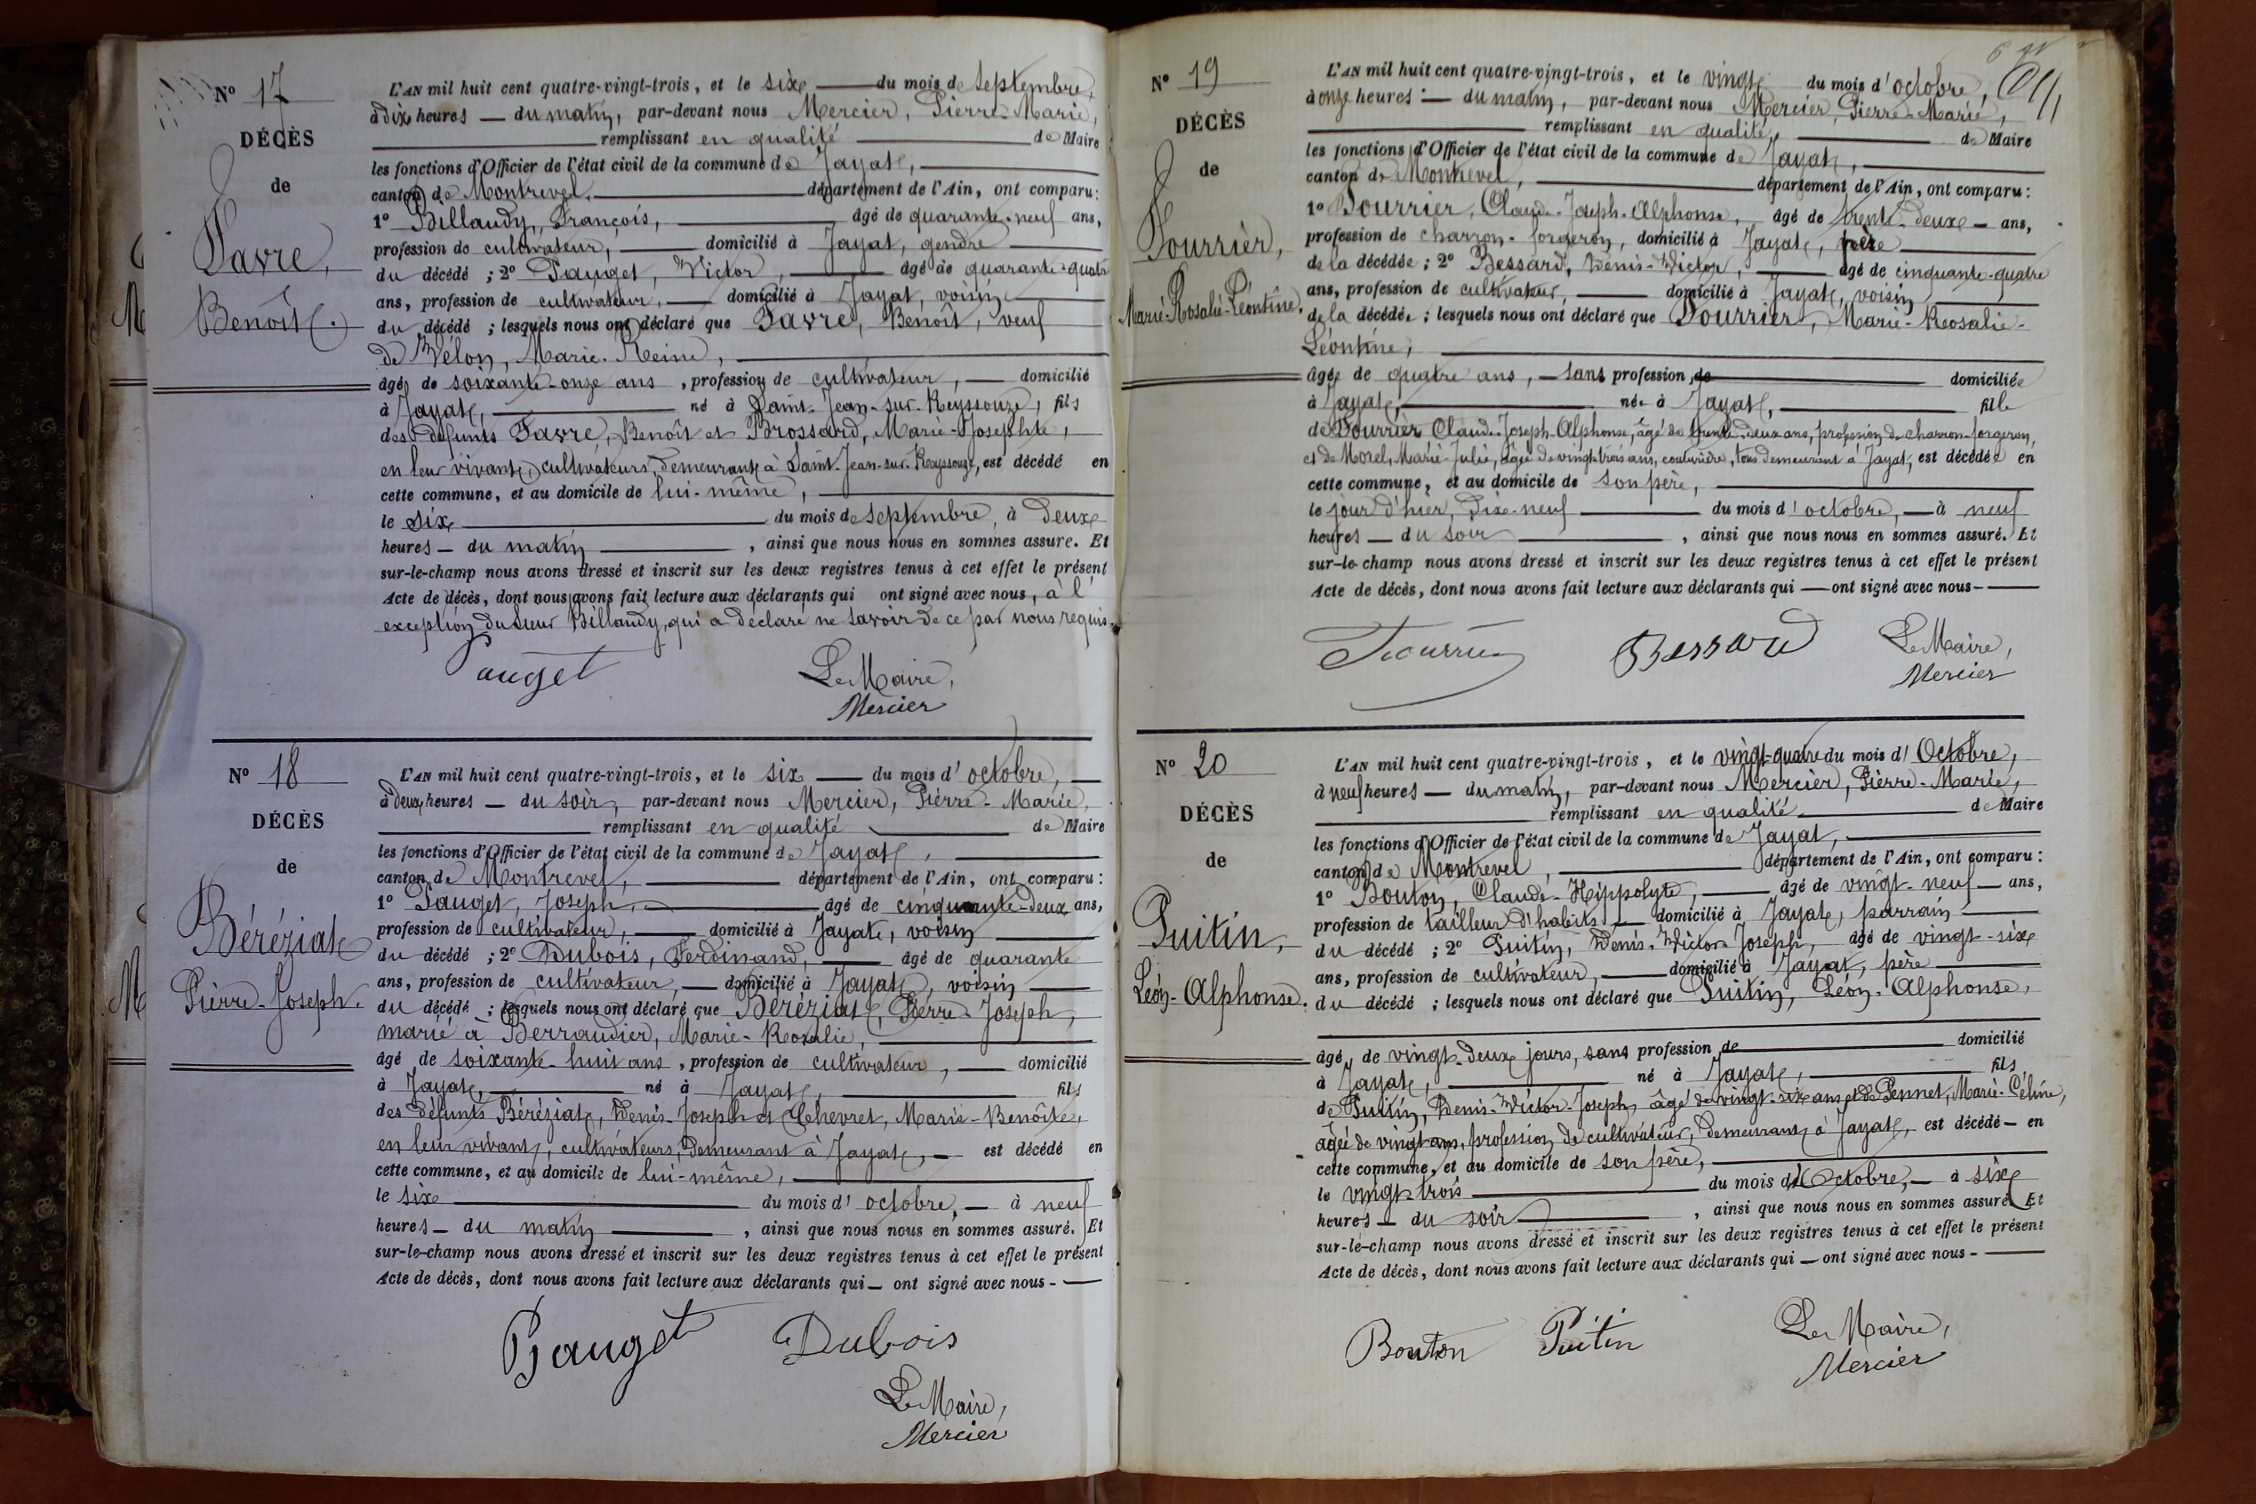 N° 17
DÉCÈS
de
Favre,
Benoît.
L'AN mil huit cent quatre-vingt-trois, et le six du mois de septembre,
à dix heures du matin, par-devant nous Mercier, Pierre-Marie,
remplissant en qualité de Maire
les fonctions d'Officier de l'état civil de la commune de Jayat,
canton de Montrevel, département de l'Ain, ont comparu :
1° Billaudy, François, âgé de quarante-neuf ans,
profession de cultivateur, domicilié à Jayat, gendre
du décédé ; 2° Pauget, Victor, âgé de quarante-quatre
ans, profession de cultivateur, domicilié à Jayat, voisin
du décédé ; lesquels nous ont déclaré que Favre, Benoît, veuf
de Vélon, Marie-Reine,
âgé de soixante-onze ans, profession de cultivateur, domicilié
à Jayat, né à Saint-Jean-sur-Reyssouze, fils
des défunts Favre, Benoît et Brossard, Marie-Josephte,
en leur vivant, cultivateurs, demeurant à Saint-Jean-sur-Reyssouze, est décédé en
cette commune, et au domicile de lui-même,
le six du mois de septembre, à deux
heures du matin, ainsi que nous nous en sommes assuré. Et
sur-le-champ nous avons dressé et inscrit sur les deux registres tenus à cet effet le présent
Acte de décès, dont nous avons fait lecture aux déclarants qui ont signé avec nous, à l'
exception du sieur Billaudy, qui a déclaré ne savoir de ce par nous requis.
Pauget
Le Maire,
Mercier
N° 18
DÉCÈS
de
Béréziat
Pierre-Joseph.
L'AN mil huit cent quatre-vingt-trois, et le six du mois d'octobre,
à deux heures du soir, par-devant nous Mercier, Pierre-Marie,
remplissant en qualité de Maire
les fonctions d'Officier de l'état civil de la commune de Jayat,
canton de Montrevel, département de l'Ain, ont comparu :
1° Pauget, Joseph, âgé de cinquante-deux ans,
profession de cultivateur, domicilié à Jayat, voisin
du décédé ; 2° Dubois, Ferdinand, âgé de quarante
ans, profession de cultivateur, domicilié à Jayat, voisin
du décédé ; lesquels nous ont déclaré que Béréziat, Pierre-Joseph,
marié à Perraudier, Marie-Rosalie,
âgé de soixante-huit ans, profession de cultivateur, domicilié
à Jayat, né à Jayat, fils
des défunts Béréziat, Denis-Joseph et Chevret, Marie-Benoîte,
en leur vivant, cultivateurs, demeurant à Jayat, est décédé en
cette commune, et au domicile de lui-même,
le six du mois d'octobre, à neuf
heures du matin, ainsi que nous nous en sommes assuré. Et
sur-le-champ nous avons dressé et inscrit sur les deux registres tenus à cet effet le présent
Acte de décès, dont nous avons fait lecture aux déclarants qui ont signé avec nous
Pauget
Dubois
Le Maire,
Mercier
N° 19
DÉCÈS
de
Fourrier,
Marie-Rosalie-Léontine.
L'AN mil huit cent quatre-vingt-trois, et le vingt du mois d'octobre,
à onze heures du matin, par-devant nous Mercier, Pierre-Marie,
remplissant en qualité de Maire
les fonctions d'Officier de l'état civil de la commune de Jayat,
canton de Montrevel, département de l'Ain, ont comparu :
1° Fourrier, Claude-Joseph-Alphonse, âgé de trente-deux ans,
profession de charron-forgeron, domicilié à Jayat, père
de la décédée ; 2° Bessard, Denis-Victor, âgé de cinquante-quatre
ans, profession de cultivateur, domicilié à Jayat, voisin
de la décédée ; lesquels nous ont déclaré que Fourrier, Marie-Rosalie-
Léontine,
âgée de quatre ans, sans profession, de domiciliée
à Jayat, née à Jayat, fille
de Fourrier Claude-Joseph-Alphonse, âgé de trente-deux ans, profession de charron-forgeron,
et de Morel, Marie-Julie, âgée de vingt-trois ans, couturière, tous demeurant à Jayat, est décédée en
cette commune, et au domicile de son père,
le jour d'hier, dix-neuf du mois d'octobre, à neuf
heures du soir, ainsi que nous nous en sommes assuré. Et
sur-le-champ nous avons dressé et inscrit sur les deux registres tenus à cet effet le présent
Acte de décès, dont nous avons fait lecture aux déclarants qui ont signé avec nous
Fourrier
Bessard
Le Maire,
Mercier
N° 20
DÉCÈS
de
Puitin,
Léon-Alphonse.
L'AN mil huit cent quatre-vingt-trois, et le vingt-quatre du mois d'Octobre,
à neuf heures du matin, par-devant nous Mercier, Pierre-Marie,
remplissant en qualité de Maire
les fonctions d'Officier de l'état civil de la commune de Jayat,
canton de Montrevel, département de l'Ain, ont comparu :
1° Bouton, Claude-Hippolyte, âgé de vingt-neuf ans,
profession de tailleur d'habits domicilié à Jayat, parrain
du décédé ; 2° Puitin, Denis-Victor-Joseph, âgé de vingt-six
ans, profession de cultivateur, domicilié à Jayat, père
du décédé ; lesquels nous ont déclaré que Puitin, Léon-Alphonse,
âgé de vingt-deux jours, sans profession de domicilié
à Jayat, né à Jayat, fils
de Puitin, Denis-Victor-Joseph, âgé de vingt-six ans et de Pennet, Marie-Céline,
âgée de vingt ans, profession de cultivateur, demeurant à Jayat, est décédé en
cette commune, et au domicile de son père,
le vingt-trois du mois d'Octobre, à six
heures du soir, ainsi que nous nous en sommes assuré. Et
sur-le-champ nous avons dressé et inscrit sur les deux registres tenus à cet effet le présent
Acte de décès, dont nous avons fait lecture aux déclarants qui ont signé avec nous
Bouton
Puitin
Le Maire,
Mercier